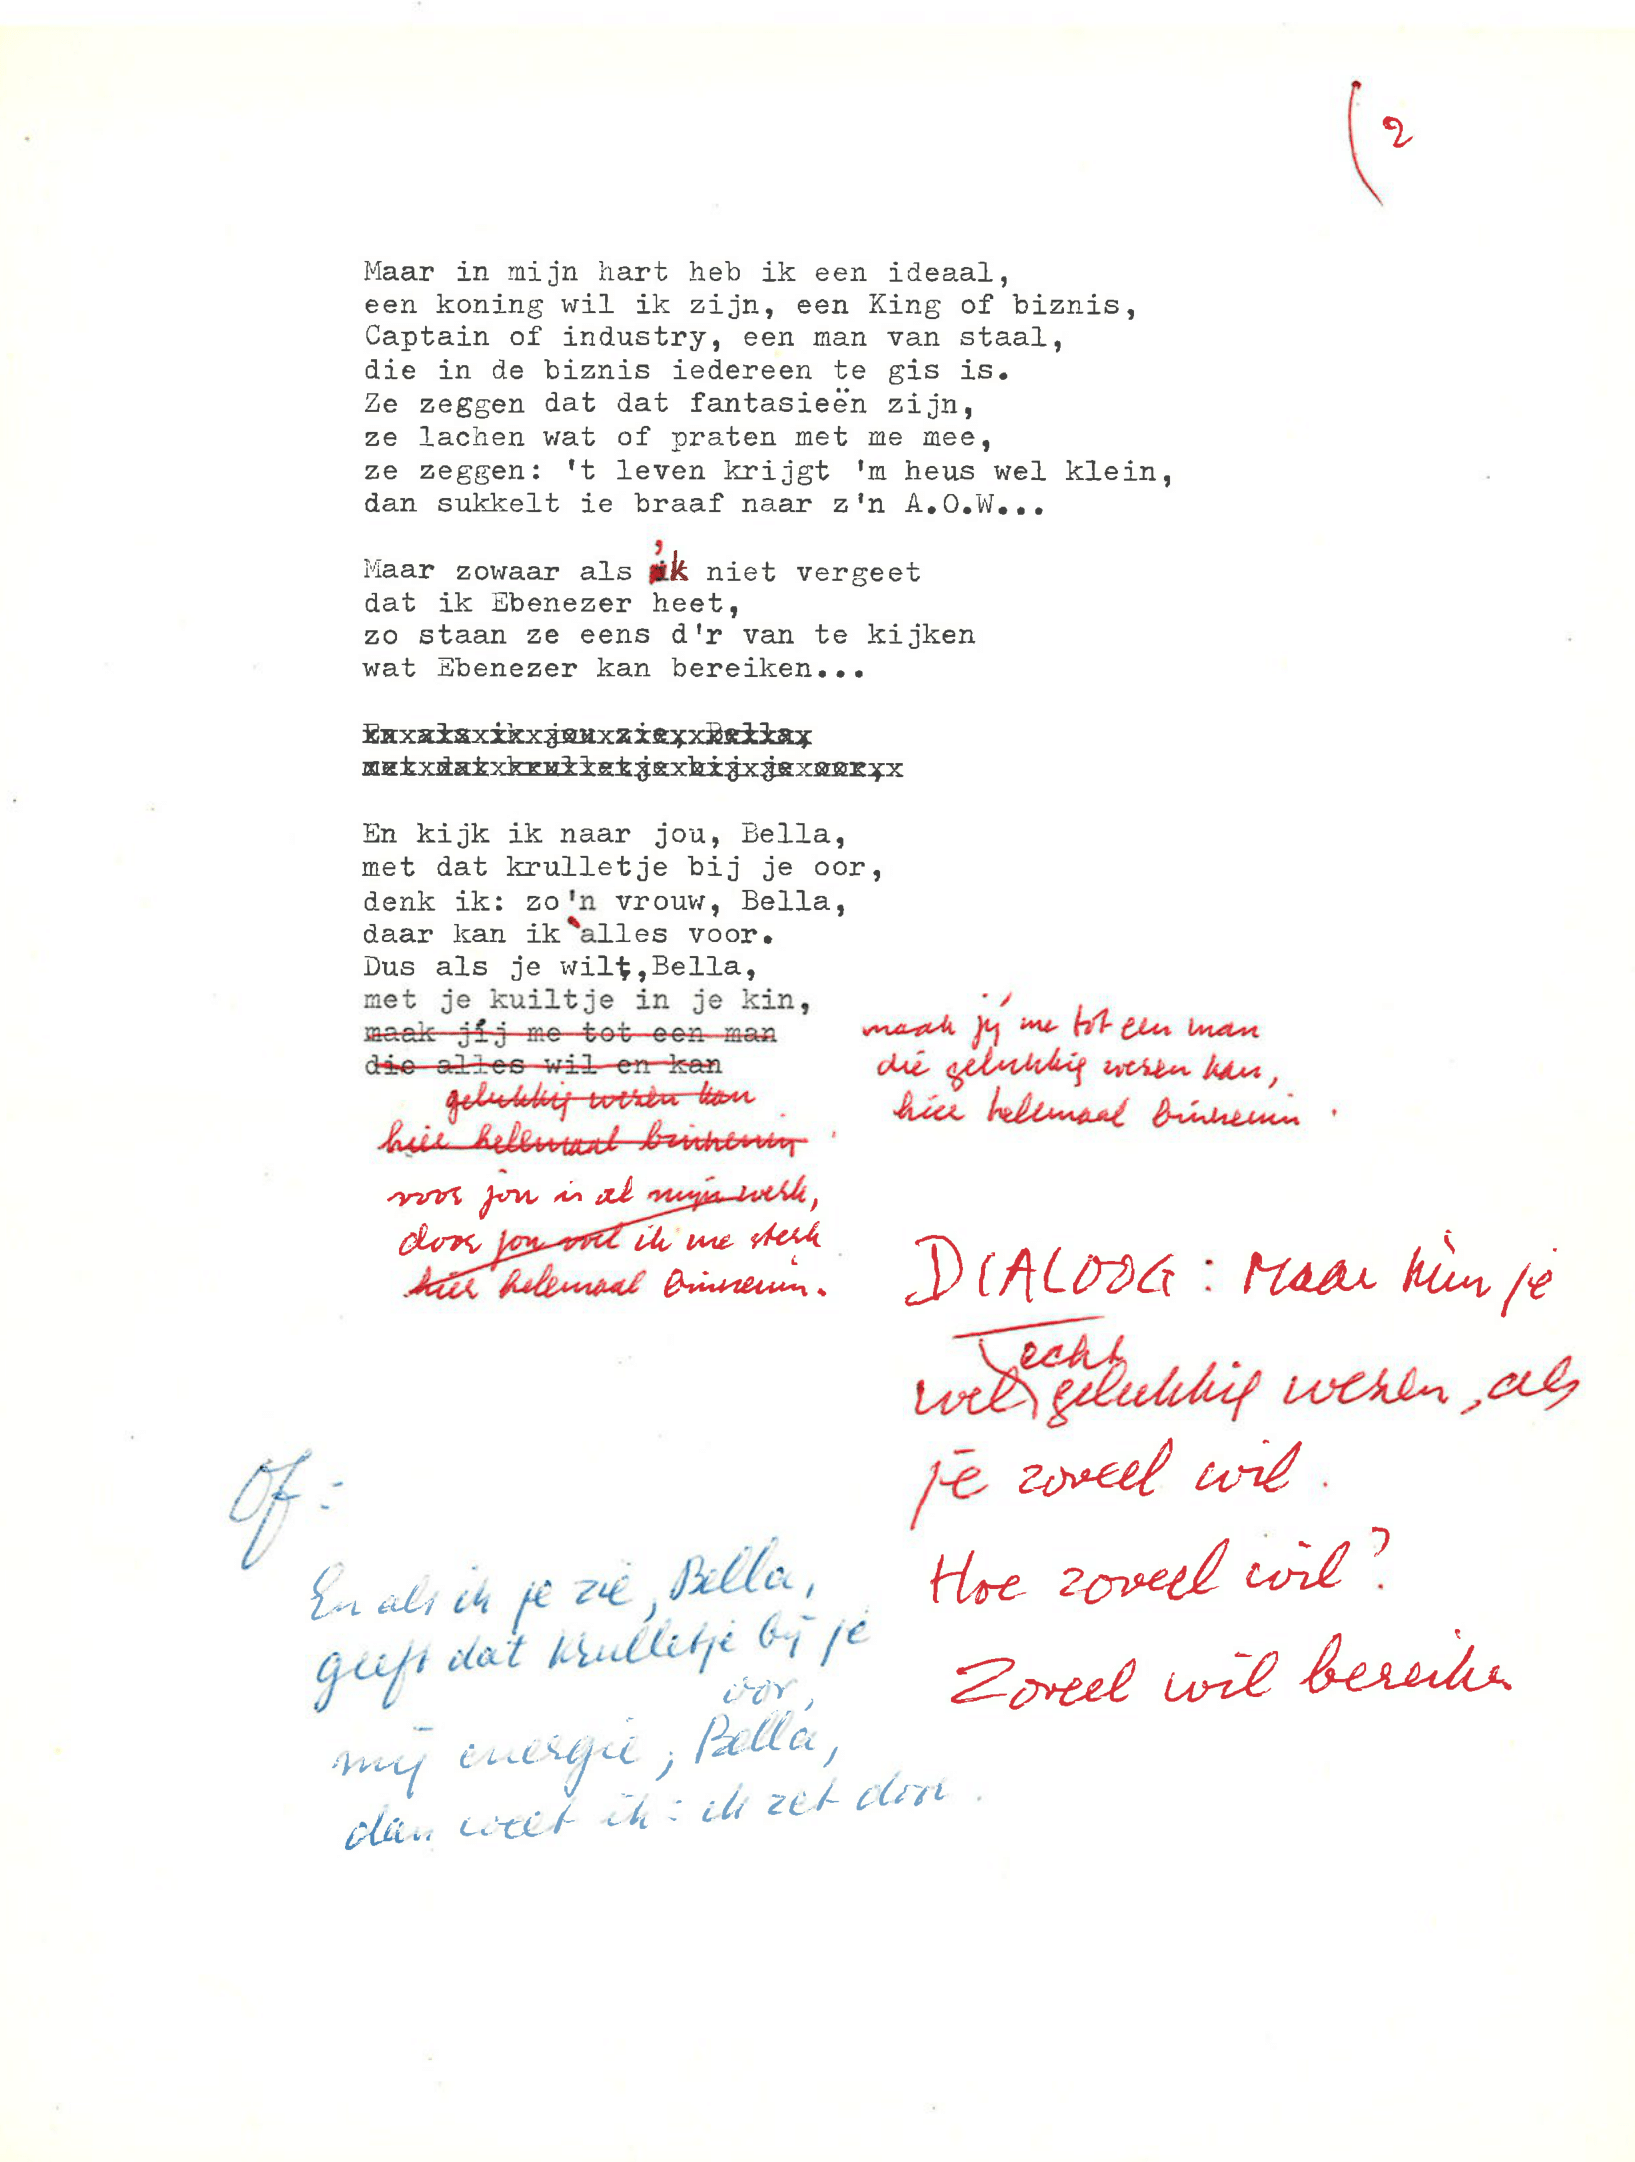 (2
Maar in mijn hart heb ik een ideaal,
een koning wil ik zijn, een King of biznis,
Captain of industry, een man van staal,
die in de biznis iedereen te gis is.
Ze zeggen dat dat fantasieën zijn,
ze lachen wat of praten met me mee,
ze zeggen: 't leven krijgt 'm heus wel klein,
dan sukkelt ie braaf naar z'n A.O.W...
Maar zowaar als 'k niet vergeet
dat ik Ebenezer heet,
zo staan ze eens d'r van te kijken
wat Ebenezer kan bereiken...
En als ik jou zie, Bella,
met dat krulletje bij je oor,
En kijk ik naar jou, Bella,
met dat krulletje bij je oor,
denk ik: zo'n vrouw, Bella,
daar kan ik alles voor.
Dus als je wilt, Bella,
met je kuiltje in je kin,
maak jíj me tot een man
die alles wil en kan
gelukkig wezen kan
hier helemaal binnenin.
voor jou is al mijn werk,
door jou voel ik me sterk
hier helemaal binnenin.
maak jij me tot een man
die gelukkig wezen kan,
hier helemaal binnenin.
DIALOOG: Maar kùn je
wel echt gelukkig wezen, als
je zoveel wil.
Hoe zoveel wil?
Zoveel wil bereiken
Of:
En als ik je zie, Bella,
geeft dat krulletje bij je
oor,
mij energie, Bella,
dan weet ik: ik zet door.